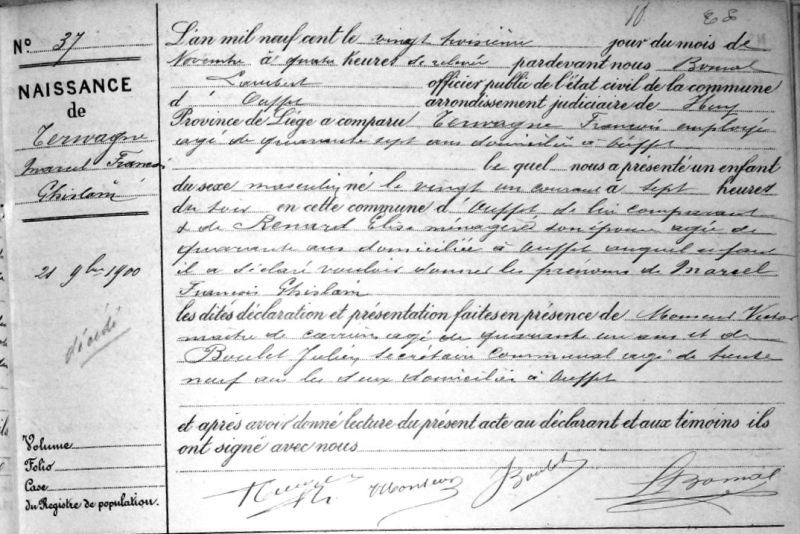 10
N° 37
NAISSANCE
de
Terwagne
Marcel François
Ghislain
21 9bre 1900
décédé
Volume
Folio
Case
du Registre de population.
L'an mil neuf cent le vingt troisième jour du mois de
Novembre à quatre heures de relevée pardevant nous Bomal
Lambert officier public de l'état civil de la commune
d'Ouffet arrondissement judiciaire de Huy
Province de Liège a comparu Terwagne François employé
agé de quarante sept ans domicilié à Ouffet
le quel nous a présenté un enfant
du sexe masculin né le vingt un courant à sept heures
du soir en cette commune d'Ouffet de lui comparant
& de Renard Elise ménagère son épouse agée de
quarante ans domiciliée à Ouffet auquel enfant
il a déclaré vouloir donner les prénoms de Marcel
François Ghislain
les dites déclaration et présentation faites en présence de Monseur Victor
maître de carrière agé de quarante un ans et de
Boulet Julien secrétaire communal agé de trente
neuf ans les deux domiciliés à Ouffet
et après avoir donné lecture du présent acte au déclarant et aux témoins ils
ont signé avec nous
Monseur JBoulet LBomal